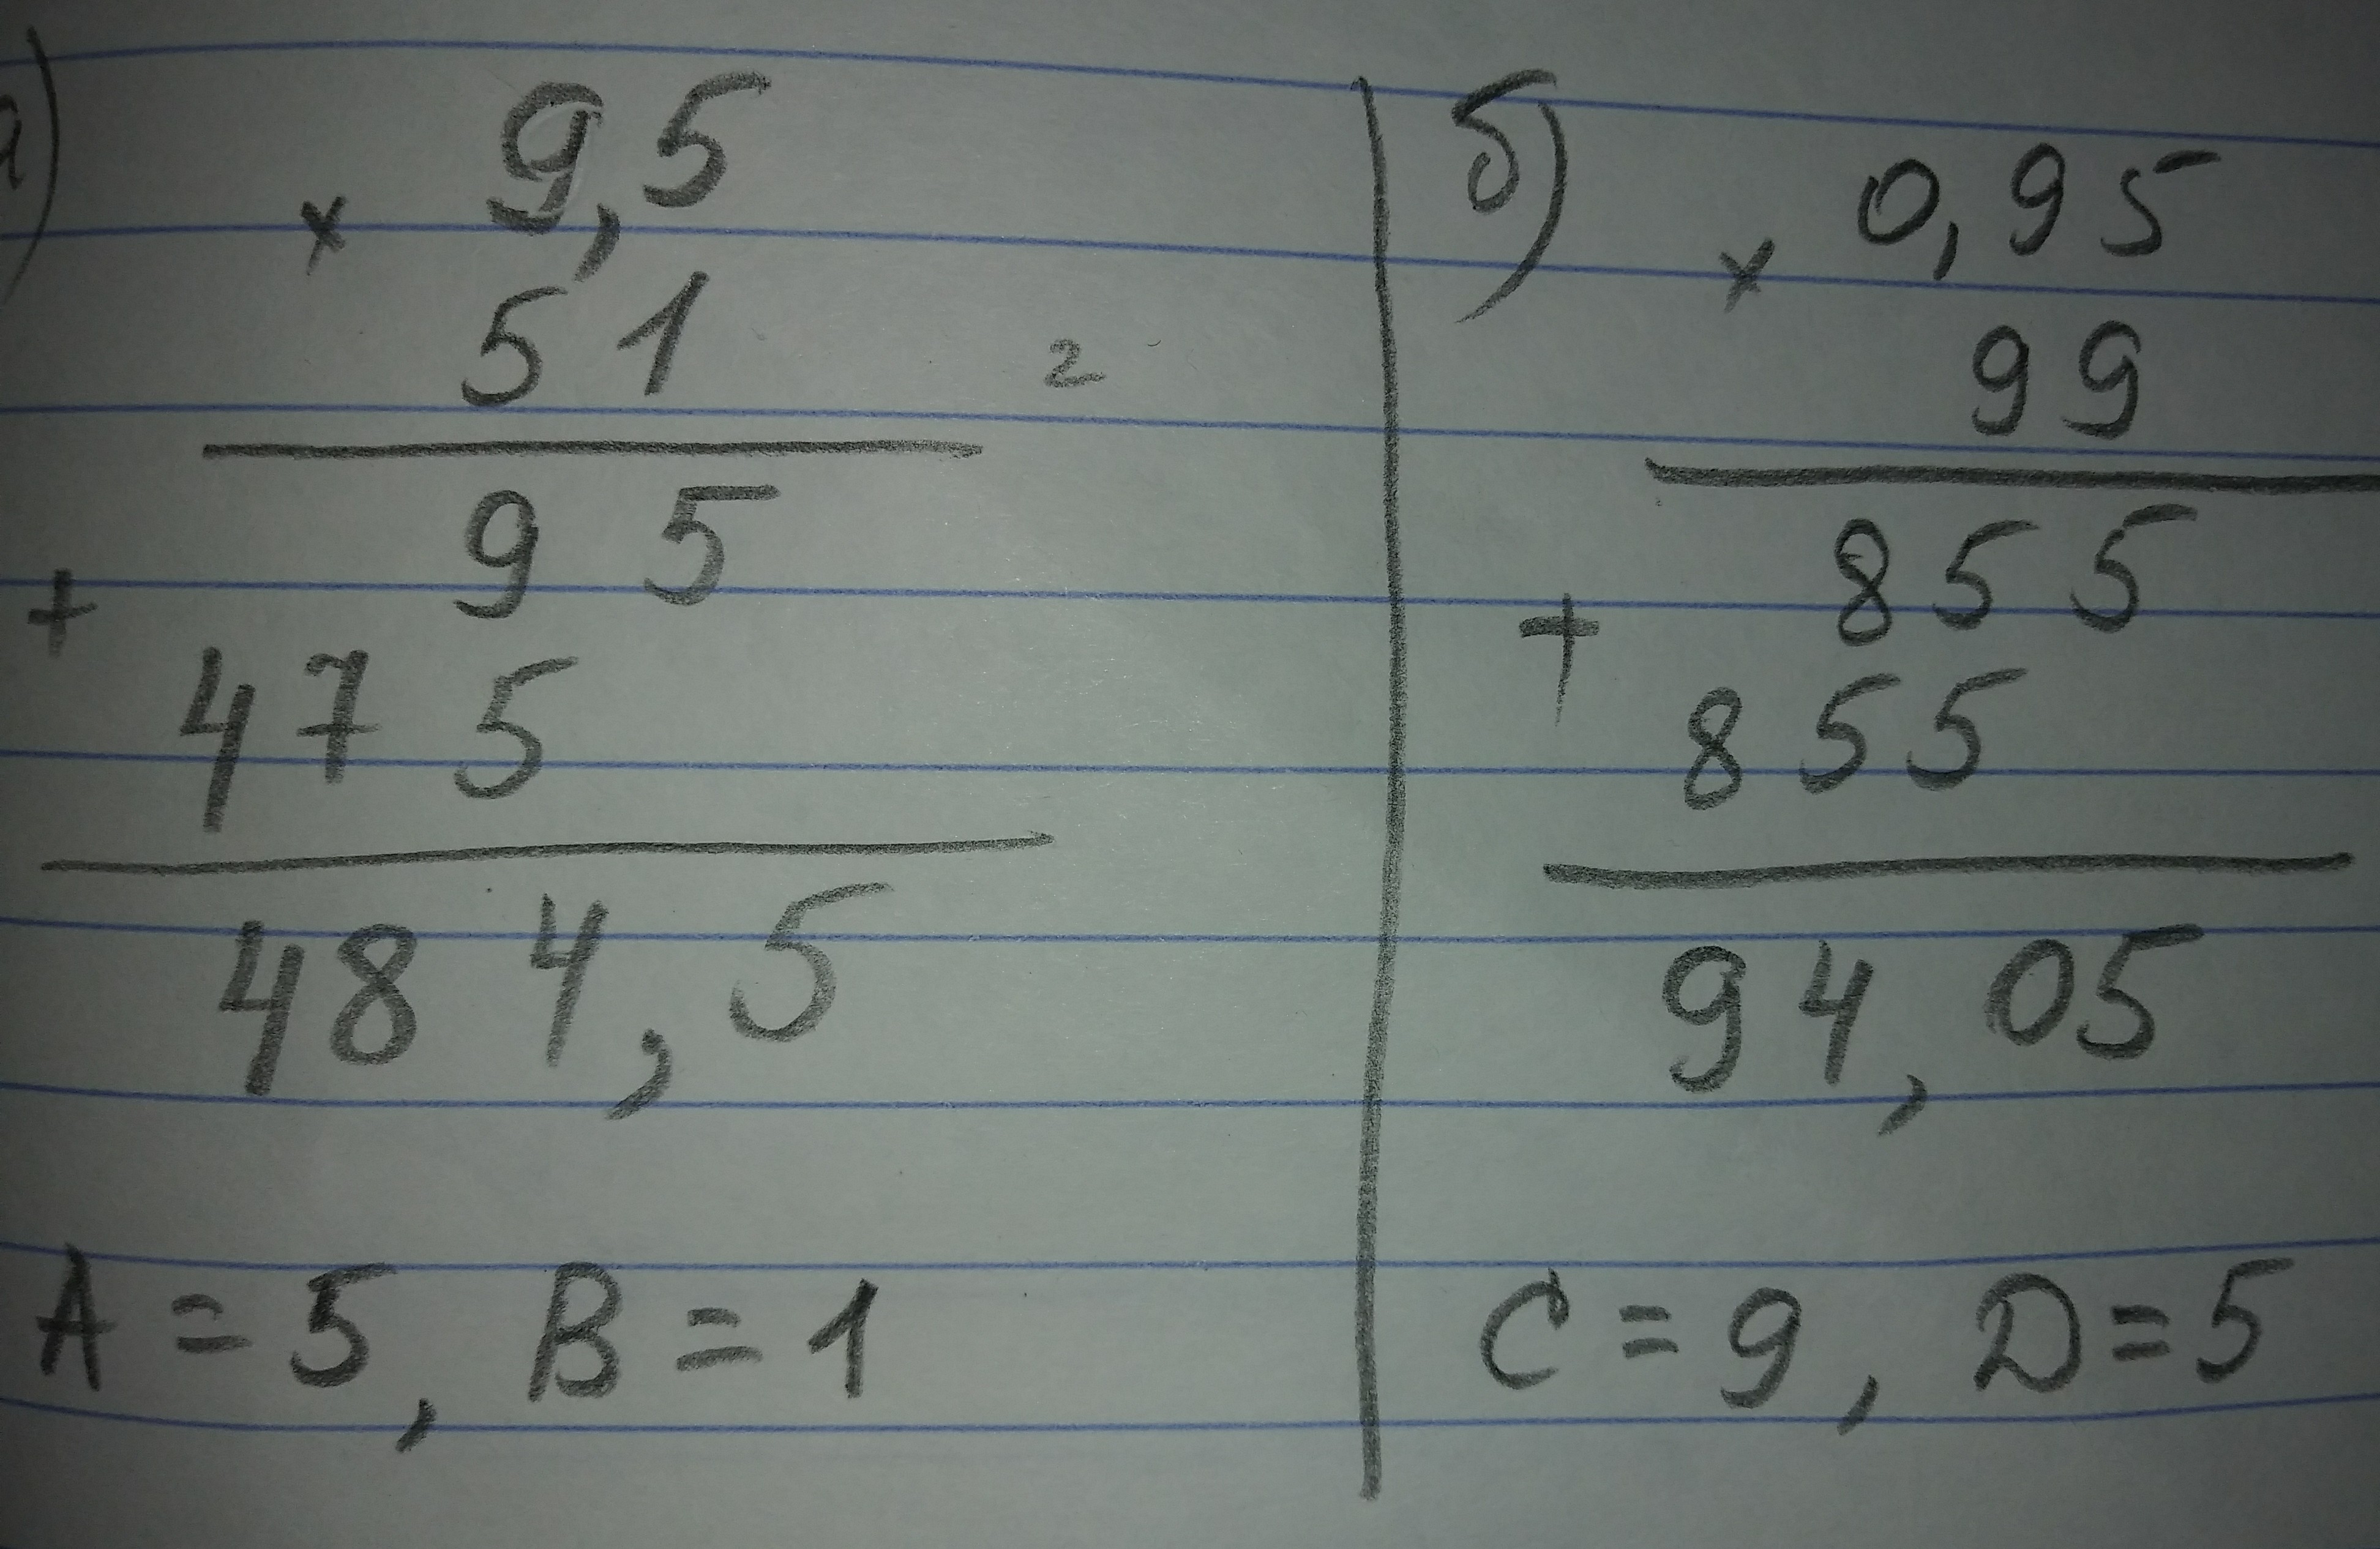 а)
9,5
×
51
2
95
+
475
484,5
A = 5, B = 1
б)
0,95
×
99
855
+
855
94,05
C = 9, D = 5